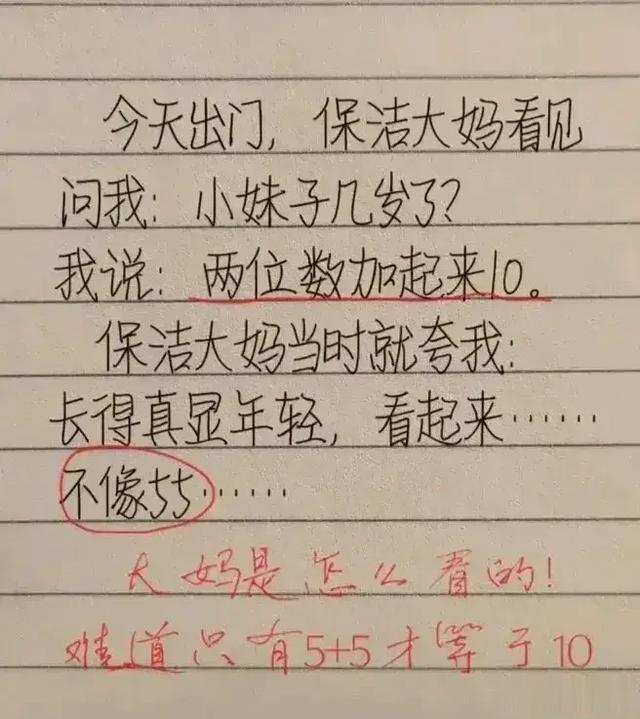 今天出门，保洁大妈看见
问我：小妹子几岁了？
我说：两位数加起来10。
保洁大妈当时就夸我：
长得真显年轻，看起来……
不像55……
大妈是怎么看的！
难道只有5+5才等于10